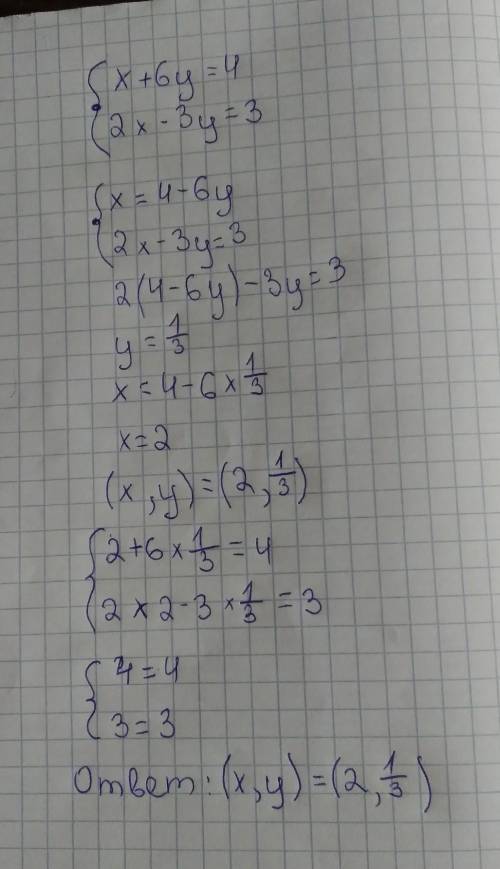 x+6y=4
2x-3y=3
x=4-6y
2x-3y=3
2(4-6y)-3y=3
y=1/3
x=4-6×1/3
x=2
(x,y)=(2,1/3)
2+6×1/3=4
2×2-3×1/3=3
4=4
3=3
Ответ:(x,y)=(2,1/3)